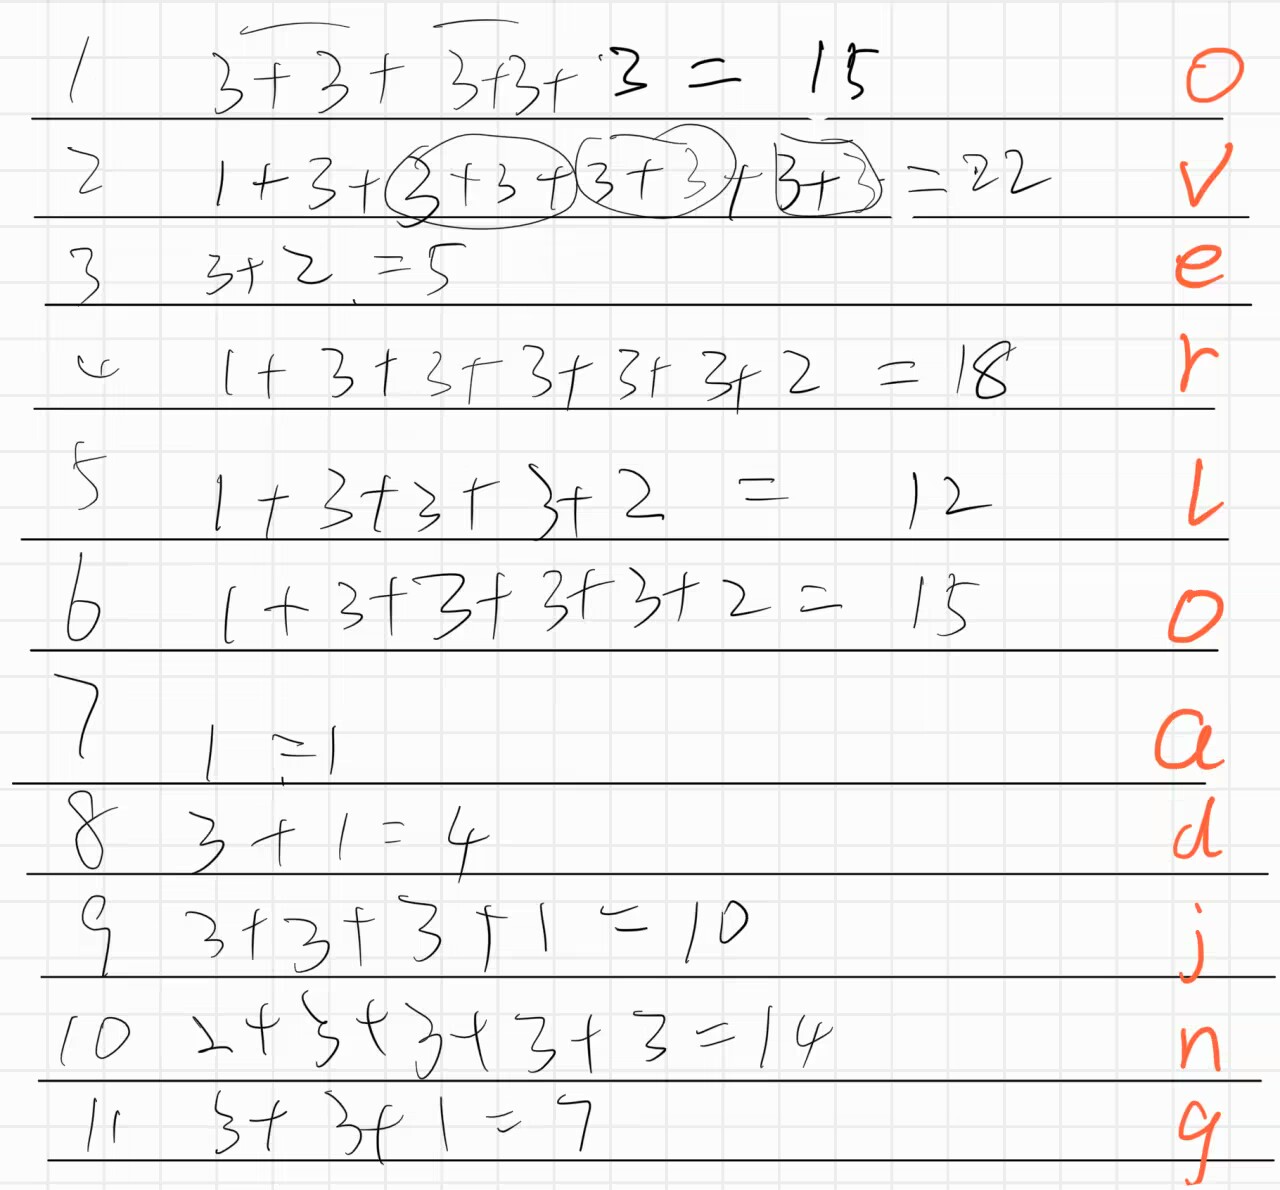 1 3+3+3+3+3=15 o
2 1+3+3+3+3+3+3+3=22 v
3 3+2=5 e
4 1+3+3+3+3+3+2=18 r
5 1+3+3+3+2=12 l
6 1+3+3+3+3+2=15 o
7 1=1 a
8 3+1=4 d
9 3+3+3+1=10 j
10 2+3+3+3+3=14 n
11 3+3+1=7 g